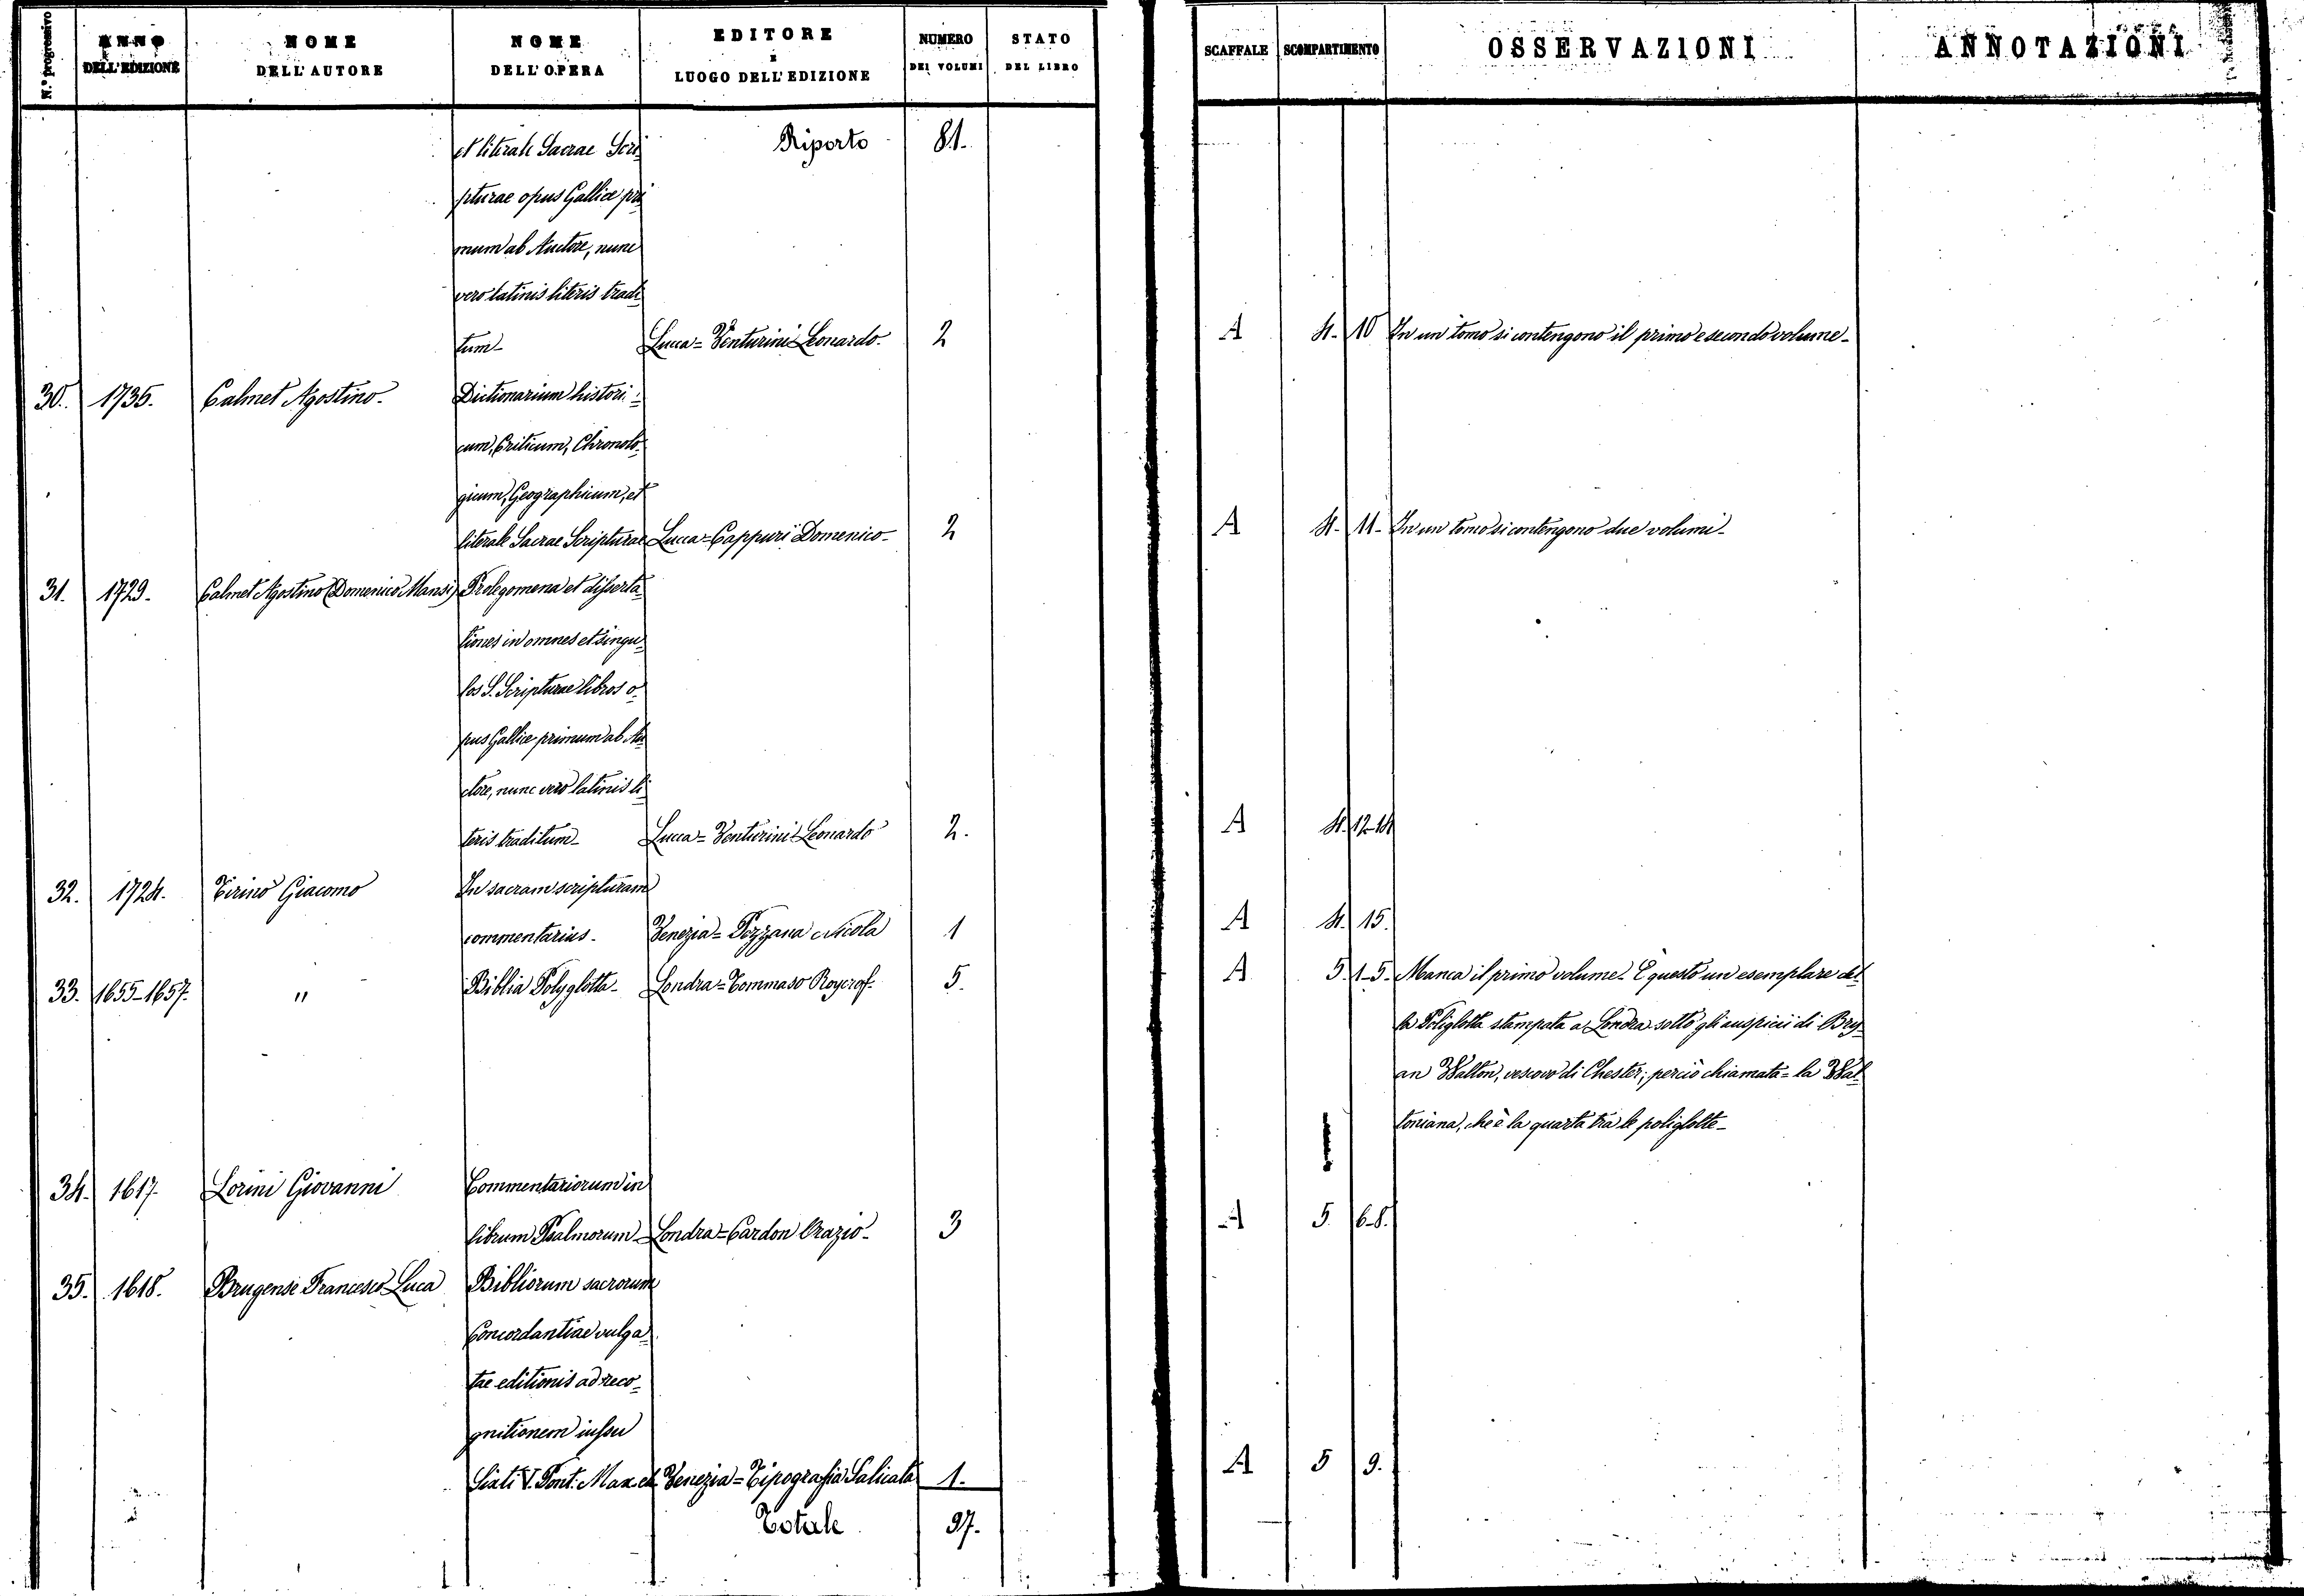 N.° progressivo
ANNO DELL'EDIZIONE
NOME DELL'AUTORE
NOME DELL'OPERA
EDITORE E LUOGO DELL'EDIZIONE
NUMERO DEI VOLUMI
STATO DEL LIBRO
SCAFFALE
SCOMPARTIMENTO
OSSERVAZIONI
ANNOTAZIONI
et literale Sacrae Scri- Riporto 81.
pturae opus Gallice pri-
mum ab Auctore, nunc
vero latinis literis tradi-
tum- Lucca= Venturini Leonardo. 2 A 4. 10 In un tomo si contengono il primo e secondo volume-
30. 1735. Calmet Agostino. Dictionarium histori-
cum, Criticum, Chronolo-
gicum, Geographicum, et
literale Sacrae Scripturae Lucca=Cappuri Domenico- 2 A 4. 11- In un tomo si contengono due volumi-
31. 1729. Calmet Agostino (Domenico Mansi) Prolegomena et disserta-
tiones in omnes et singu-
los S. Scripturae libros o-
pus Gallice primum ab Au-
ctore, nunc vero latinis li-
teris traditum- Lucca= Venturini Leonardo 2. A 4. 12-14
32. 1724. Tirino Giacomo In sacram scripturam
commentarius- Venezia= Pezzana Nicola 1 A 4. 15.
33. 1655-1657. " Biblia Polyglotta- Londra=Tommaso Roycrof- 5. A 5. 1-5. Manca il primo volume. È questo un esemplare del-
la Poliglotta stampata a Londra sotto gli auspicii di Bry-
an Walton, vescovo di Chester; perciò chiamata= la Wal-
toniana, che è la quarta tra le poliglotte-
34. 1617. Lorini Giovanni Commentariorum in
librum Psalmorum- Londra=Cardon Orazio- 3 A 5. 6-8.
35. 1618. Brugense Francesco Luca Bibliorum sacrorum
Concordantiae vulga-
tae editionis ad reco-
gnitionem iussu
Sixti V. Pont. Max. et Venezia=Tipografia Salicata 1. A 5 9.
Totale 97.